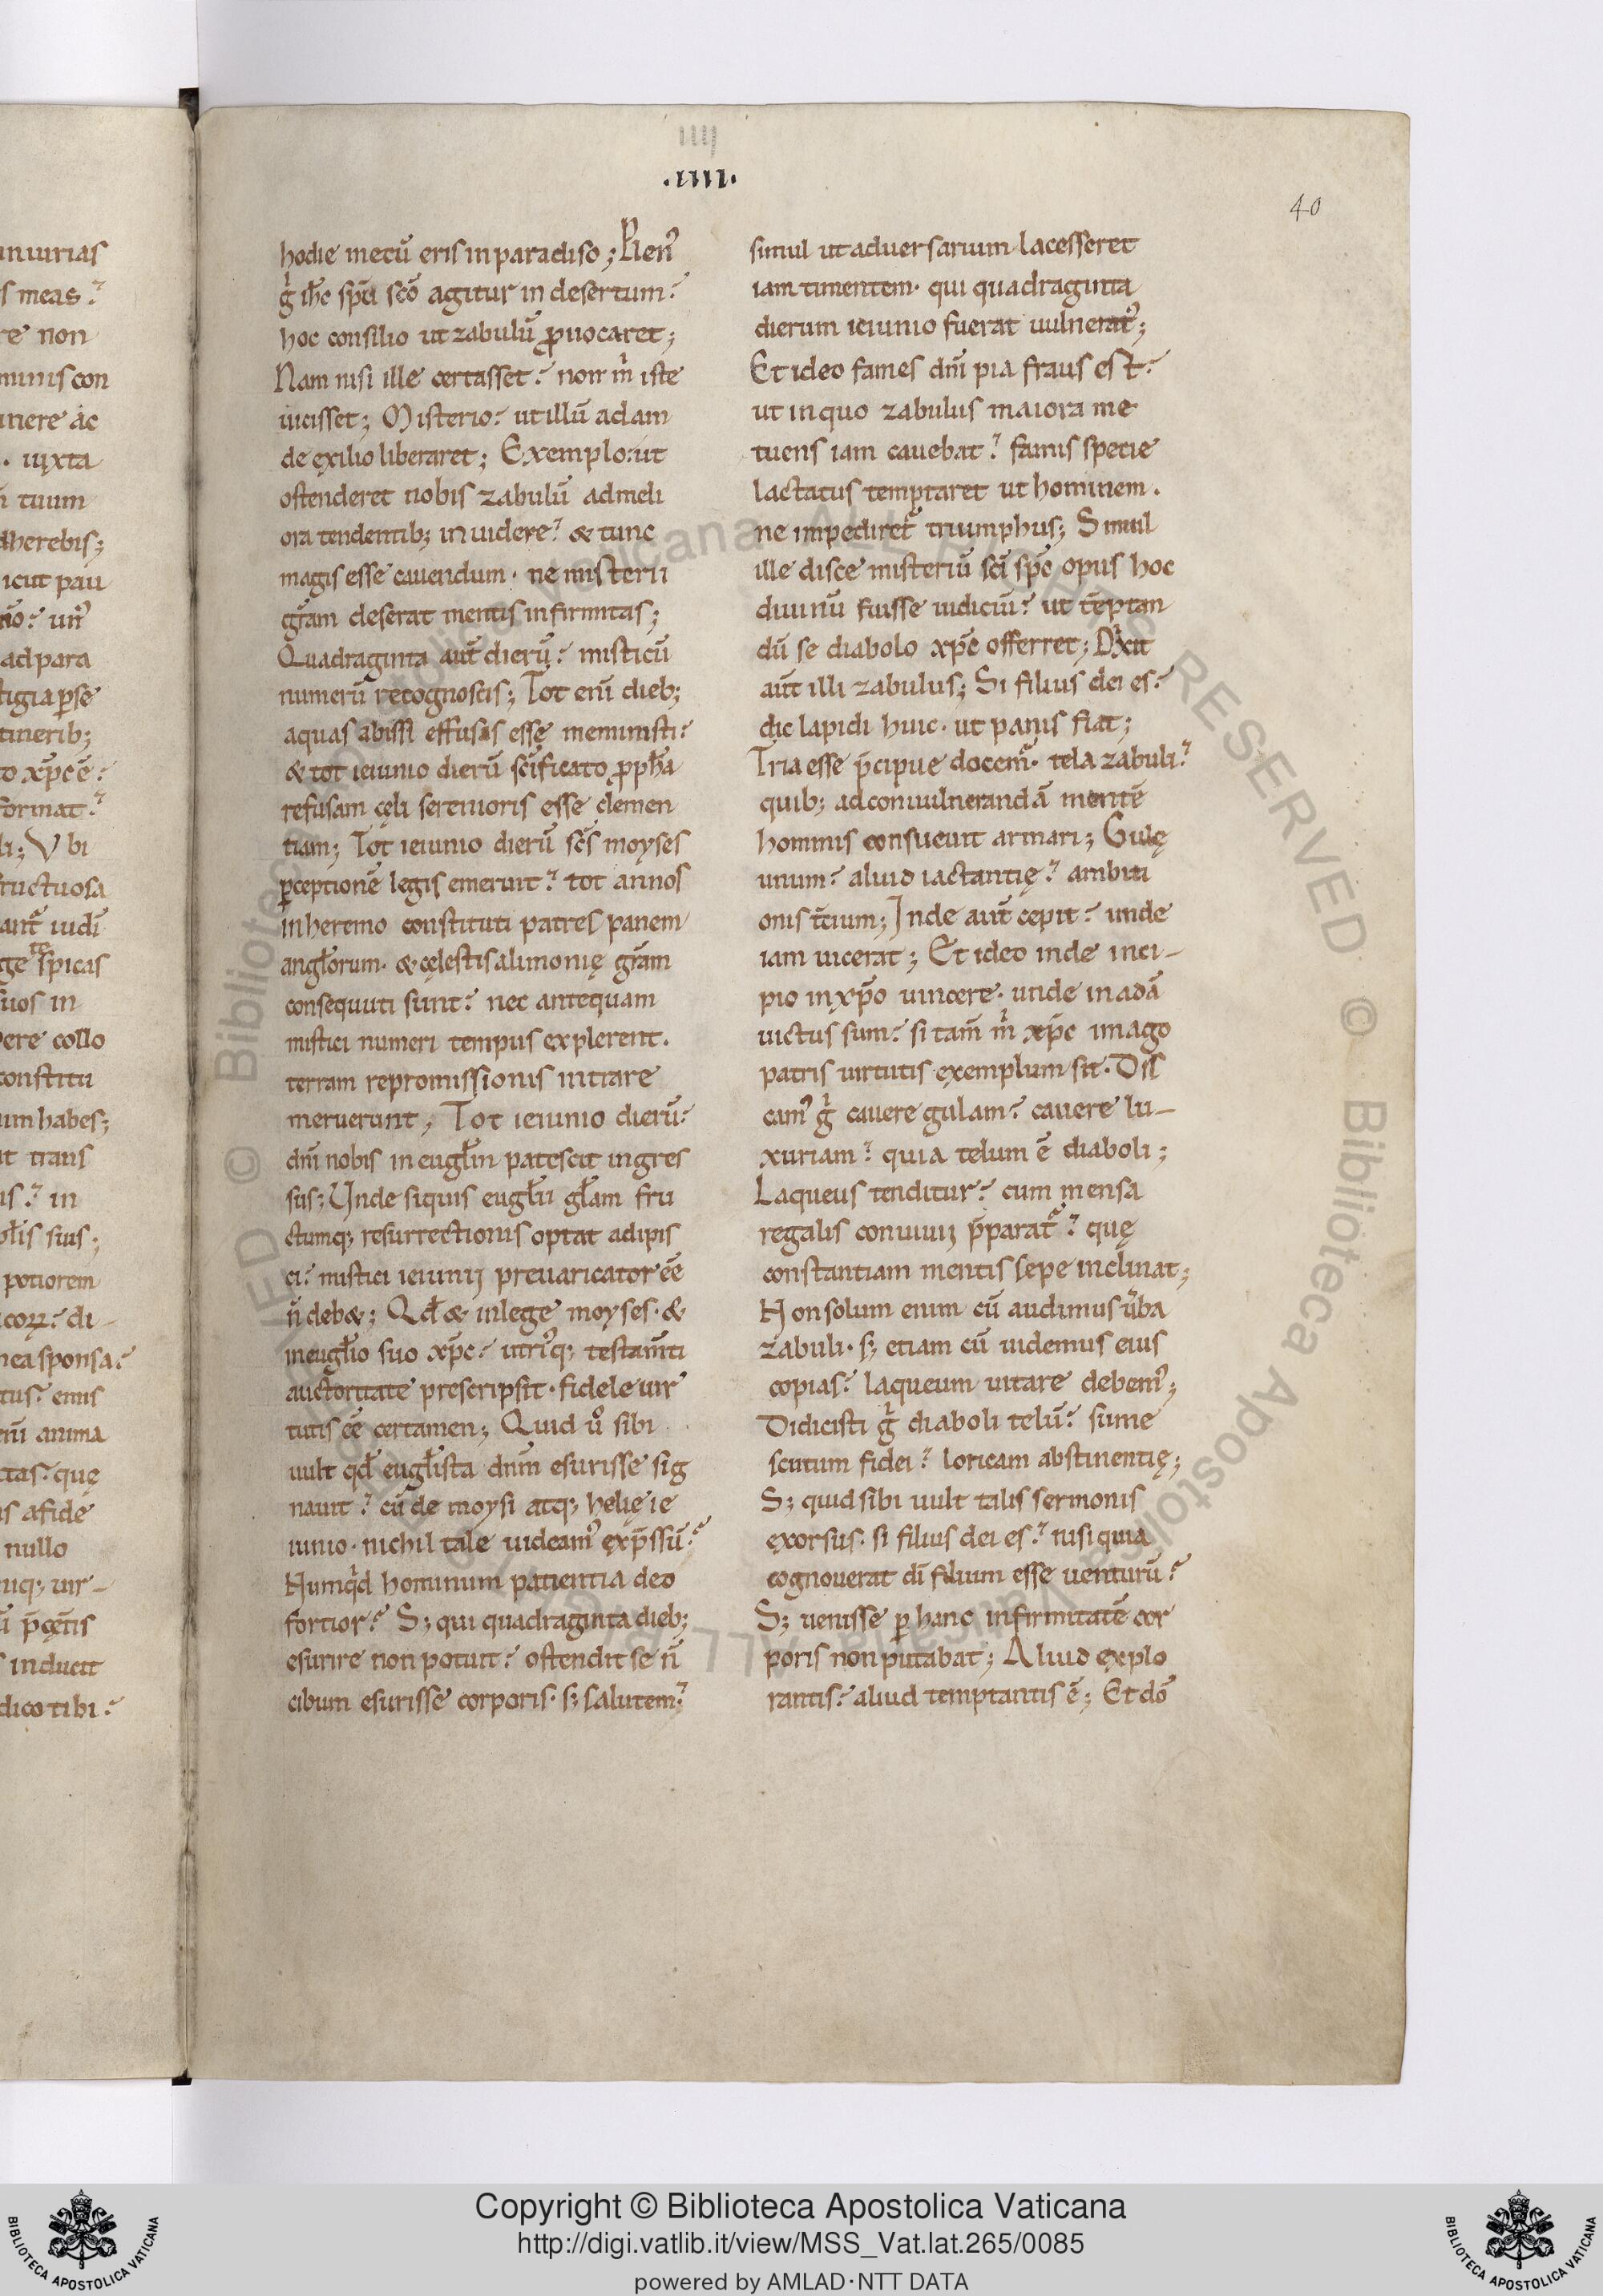 iiij
.iiii.
40
niurias
s meas?
re non
minis con
mere ac
. iuxta
tuum
dherebis;
icut pau
ad para
tigia p̲se
tinerib;
to xp̄c ē?
format?
li; Vbi
fructuosa
ant᷑ iudī
te
ge spicas
suos in
pere collo
constitu
um habes;
ut trans
is? in
potiorem
nea sponsa?
tus? enis
anima
tas? quę
is afide
nullo
uq; uir-
inducit
dico tibi?
hodie mecū eris in paradiso; Plen᷒
g̊ ih̄c sp̄u sc̄o agitur in desertum?
hoc consilio ut zabulū ꝓuocaret;
Nam nisi ille certasset? non m̊ iste
uicisset; Misterio? ut illū adam
de exilio liberaret; Exemplo? ut
ostenderet nobis zabulū ad meli
ora tendentib; inuidere? & tunc
magis esse cauendum. ne misterii
gr̄am deserat mentis infirmitas;
Quadraginta aut̄ dierū? misticū
numerū recognoscis; Tot eni dieb;
aquas abissi effusas esse meministi?
& tot ieiunio dierū sc̄ificato ꝓph̄a
refusam cęli serenioris esse clemen
tiam; Tot ieiunio dierū sc̄s moyses
ꝑceptionē legis emeruit? tot annos
in heremo constituti patres panem
angl̄orum. & cęlestis alimonię gr̄am
consequuti sunt? nec antequam
mistici numeri tempus explerent.
terram repromissionis intrare
meruerunt; Tot ieiunio dierū?
dn̄i nobis in eugl̄in patescit ingres
sus; Unde siquis eugl̄ii gl̄am fru
ctumq; resurrectionis optat adipis
ci? mistici ieiunij preuaricator ēē
n̄ deb&; Qd̄ & in lege moyses. &
in eugl̄io suo xp̄c? utri᷒q; testam̄ti
auctoritate prescripsit. fidele uir
tutis ēē certamen; Quid ů sibi
uult qd̄ eugl̄ista dn̄m esurisse sig
nauit? cū de moysi atq; helię ie
iunio. nichil tale uideam᷒ exp̄ssū?
Numq̊d hominum patientia deo
fortior? S; qui quadraginta dieb;
esurire non potuit? ostendit se n̄
cibum esurisse corporis. s; salutem?
simul ut aduersarium lacesseret
iam timentem. qui quadraginta
dierum ieiunio fuerat uulnerat᷒;
Et ideo fames dn̄i pia fraus est?
ut in quo zabulus maiora me
tuens iam cauebat? famis specie
lactatus temptaret ut hominem.
ne impediret᷑ triumphus; Simul
ille disce misteriū sc̄i sp̄c opus hoc
diuinū fuisse iudiciū? ut tēptan
dū se diabolo xp̄c offerret; Dixit
aūt illi zabulus; Si filius dei es?
dic lapidi huic. ut panis fiat;
Tria esse p̄cipue docem᷑. tela zabuli?
quib; ad conuulnerandā mentē
hominis consueuit armari; Gulę
unum? aliud iactantię? ambiti
onis t̄cium; Inde aut̄ cepit? unde
iam uicerat; Et ideo inde inci-
pio in xp̄o uincere. unde in adā
uictus sum? si tam̄ m̊ xp̄c imago
patris uirtutis exemplum sit. Dis
cam᷒ g̊ cauere gulam? cauere lu-
xuriam? quia telum ē diaboli;
Laqueus tenditur? cum mensa
regalis conuiuij p̄parat᷑? quę
constantiam mentis sepe inclinat;
Non solum enim cū audimus ūba
zabuli. s; etiam cū uidemus eius
copias? laqueum uitare debem᷒;
Didicisti g̊ diaboli telū? sume
scutum fidei? loricam abstinentię;
S; quid sibi uult talis sermonis
exorsus. si filius dei es? nisi quia
cognouerat dī filium esse uenturū?
S; uenisse ꝑ hanc infirmitatē cor
poris non putabat; Aliud explo
rantis? aliud temptantis ē; Et dō
© Biblioteca Apostolica Vaticana ALL RIGHTS RESERVED
© Biblioteca Apostolica Vaticana ALL RIGHTS RESERVED
BIBLIOTECA APOSTOLICA VATICANA
Copyright © Biblioteca Apostolica Vaticana
http://digi.vatlib.it/view/MSS_Vat.lat.265/0085
powered by AMLAD·NTT DATA
BIBLIOTECA APOSTOLICA VATICANA